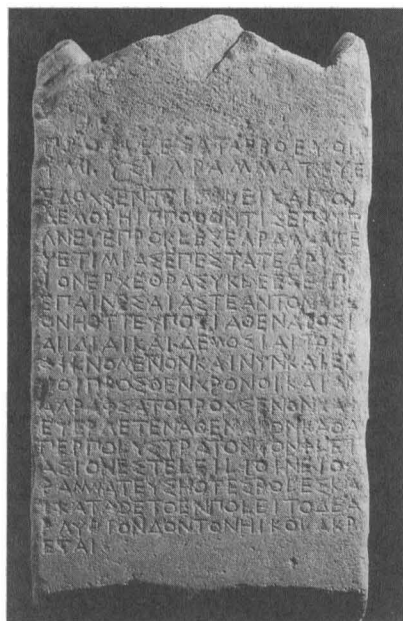 ΠΡΟΚΛΕΕΣΑΤΑΡΒΟΕΥΟΝ
ΥΜΕΥΣΕΓΡΑΜΜΑΤΕΥΕ
ΕΔΟΧΣΕΝΤΕΙΒΟΛΕΙΚΑΙΤΟΙ
ΔΕΜΟΙΗΙΠΠΟΘΟΝΤΙΣΕΠΡΥΤ
ΑΝΕΥΕΠΡΟΚΛΕΣΕΓΡΑΜΜΑΤΕ
ΥΕΤΙΜΙΑΣΕΠΕΣΤΑΤΕΑΡΙΣΤ
ΙΟΝΕΡΧΕΘΡΑΣΥΚΛΕΣΕΙΠΕ
ΕΠΑΙΝΕΣΑΙΑΣΤΕΑΝΤΟΝΑΛΕ
ΟΝΗΟΤΙΕΥΠΟΕΙΑΘΕΝΑΙΟΣΚ
ΑΙΙΔΙΑΙΚΑΙΔΕΜΟΣΙΑΙΤΟΝ
ΑΦΙΚΝΟΜΕΝΟΝΚΑΙΝΥΝΚΑΙΕΝ
ΤΟΙΠΡΟΣΘΕΝΧΡΟΝΟΙΚΑΙΑΝ
ΑΓΡΑΦΣΑΤΟΠΡΟΧΣΕΝΟΝΚΑΙ
ΕΥΕΡΓΕΤΕΝΑΘΕΝΑΙΟΝΚΑΘΑ
ΠΕΡΠΟΛΥΣΤΡΑΤΟΝΤΟΝΦΛΕΙ
ΑΣΙΟΝΕΣΤΕΛΕΙΛΙΘΙΝΕΙΟΓ
ΡΑΜΜΑΤΕΥΣΗΟΤΕΣΒΟΛΕΣΚΑ
ΙΚΑΤΑΘΕΤΟΕΝΠΟΛΕΙΤΟΔΕΑ
ΡΓΥΡΙΟΝΔΟΝΤΟΝΗΙΚΟΛΑΚΡ
ΕΤΑΙ